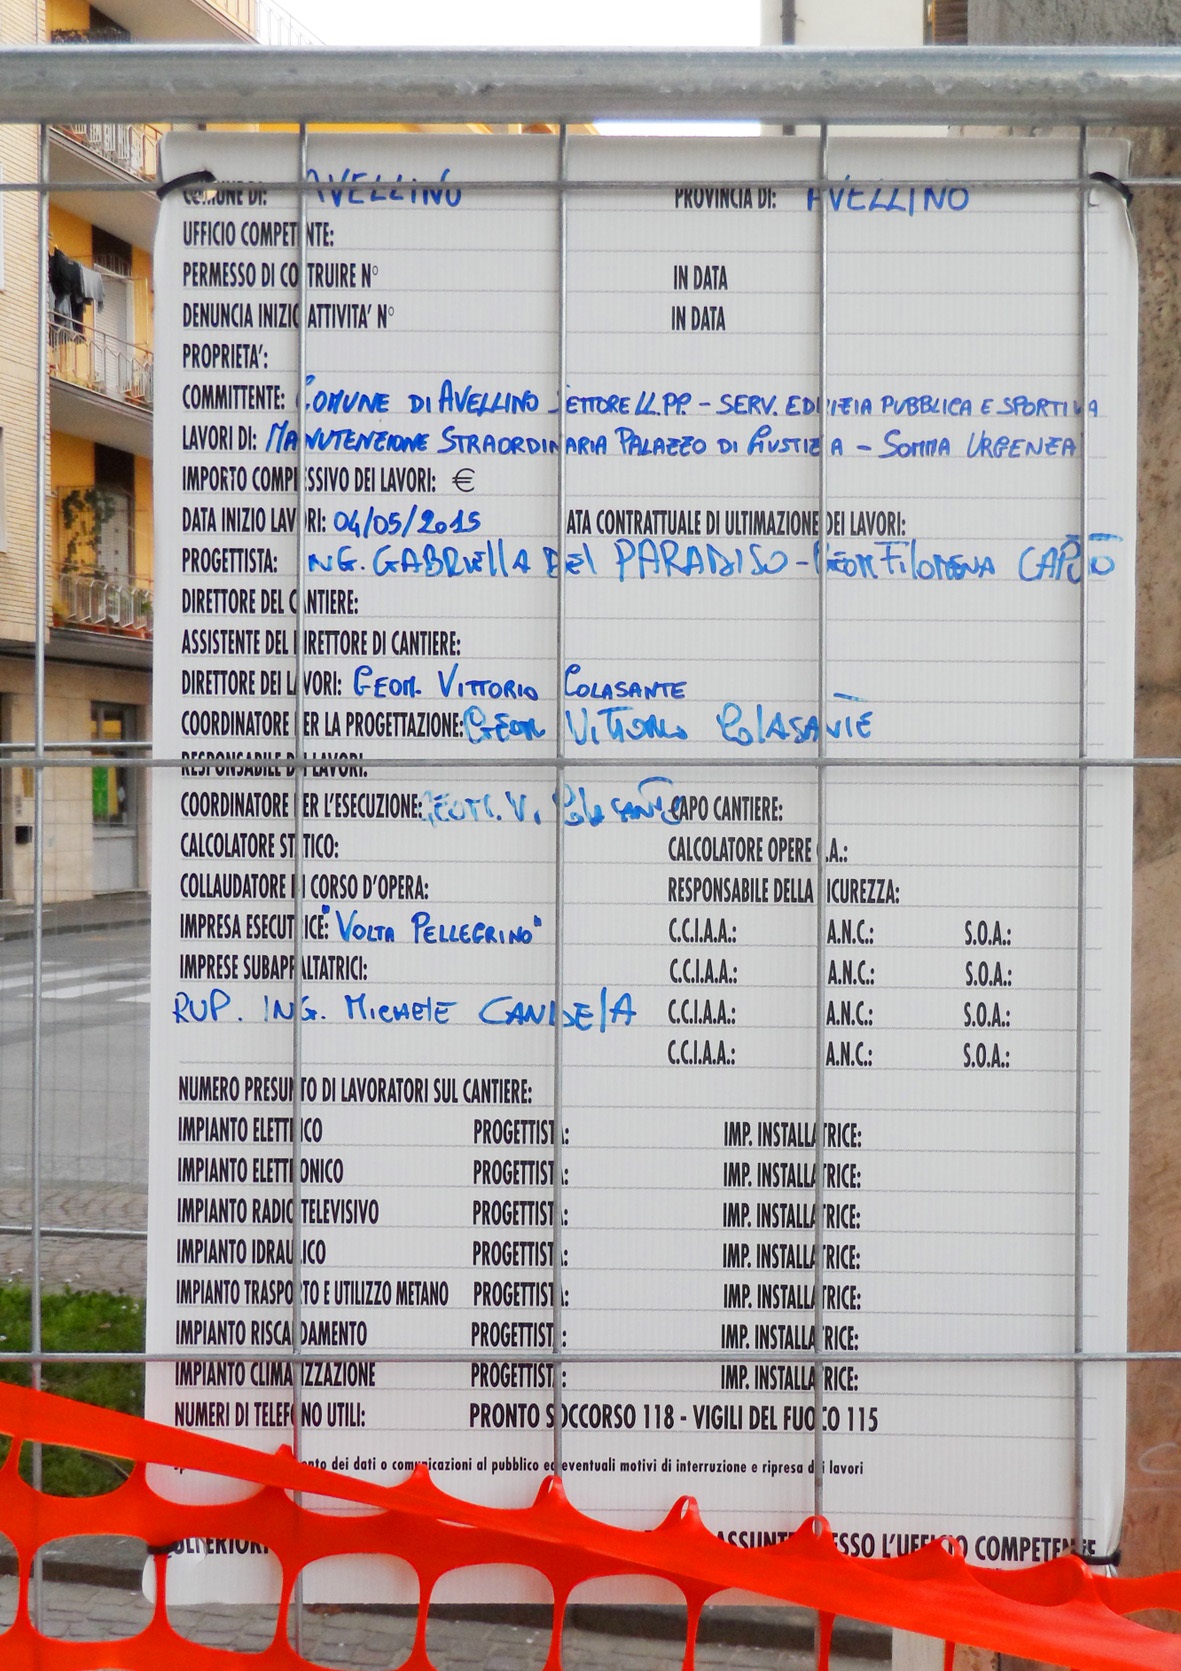 COMUNE DI: AVELLINO PROVINCIA DI: AVELLINO
UFFICIO COMPETENTE:
PERMESSO DI COSTRUIRE N° IN DATA
DENUNCIA INIZIO ATTIVITA' N° IN DATA
PROPRIETA':
COMMITTENTE: COMUNE DI AVELLINO SETTORE LL.PP. - SERV. EDILIZIA PUBBLICA E SPORTIVA
LAVORI DI: MANUTENZIONE STRAORDINARIA PALAZZO DI GIUSTIZIA - SOMMA URGENZA
IMPORTO COMPLESSIVO DEI LAVORI: €
DATA INIZIO LAVORI: 04/05/2015 DATA CONTRATTUALE DI ULTIMAZIONE DEI LAVORI:
PROGETTISTA: ING. GABRIELLA DEL PARADISO - GEOM FILOMENA CAPUTO
DIRETTORE DEL CANTIERE:
ASSISTENTE DEL DIRETTORE DI CANTIERE:
DIRETTORE DEI LAVORI: GEOM. VITTORIO COLASANTE
COORDINATORE PER LA PROGETTAZIONE: GEOM VITTORIO COLASANTE
RESPONSABILE DEI LAVORI:
COORDINATORE PER L'ESECUZIONE: GEOM. V. COLASANTE CAPO CANTIERE:
CALCOLATORE STATICO: CALCOLATORE OPERE C.A.:
COLLAUDATORE IN CORSO D'OPERA: RESPONSABILE DELLA SICUREZZA:
IMPRESA ESECUTRICE: "VOLTA PELLEGRINO" C.C.I.A.A.: A.N.C.: S.O.A.:
IMPRESE SUBAPPALTATRICI: C.C.I.A.A.: A.N.C.: S.O.A.:
RUP. ING. MICHELE CANDELA C.C.I.A.A.: A.N.C.: S.O.A.:
C.C.I.A.A.: A.N.C.: S.O.A.:
NUMERO PRESUNTO DI LAVORATORI SUL CANTIERE:
IMPIANTO ELETTRICO PROGETTISTA: IMP. INSTALLATRICE:
IMPIANTO ELETTRONICO PROGETTISTA: IMP. INSTALLATRICE:
IMPIANTO RADIOTELEVISIVO PROGETTISTA: IMP. INSTALLATRICE:
IMPIANTO IDRAULICO PROGETTISTA: IMP. INSTALLATRICE:
IMPIANTO TRASPORTO E UTILIZZO METANO PROGETTISTA: IMP. INSTALLATRICE:
IMPIANTO RISCALDAMENTO PROGETTISTA: IMP. INSTALLATRICE:
IMPIANTO CLIMATIZZAZIONE PROGETTISTA: IMP. INSTALLATRICE:
NUMERI DI TELEFONO UTILI: PRONTO SOCCORSO 118 - VIGILI DEL FUOCO 115
dei dati o comunicazioni al pubblico ed eventuali motivi di interruzione e ripresa dei lavori
ULTERIORI ASSUNTE PRESSO L'UFFICIO COMPETENTE